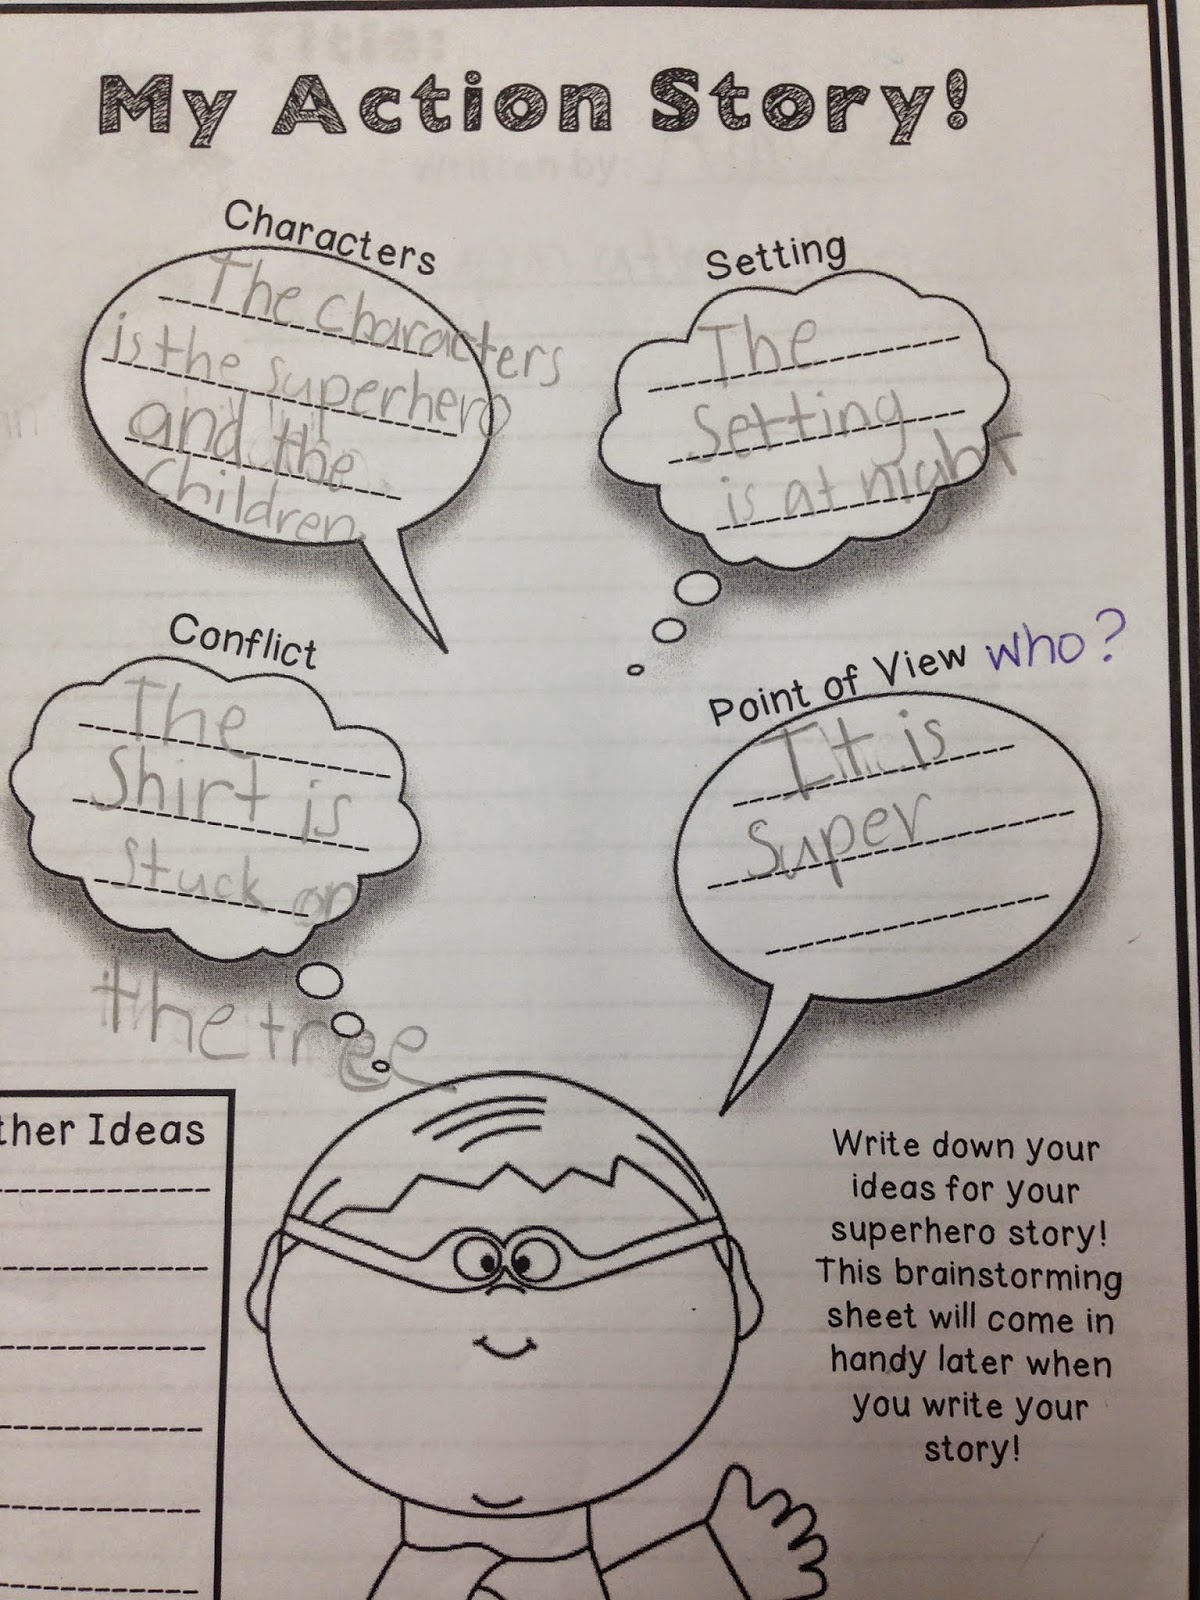 My Action Story!
Characters
The characters
is the superhero
and the
children
Setting
The
Setting
is at night
Conflict
The
Shirt is
stuck on
the tree
Point of View who?
It is
Super
ther Ideas
Write down your
ideas for your
superhero story!
This brainstorming
sheet will come in
handy later when
you write your
story!